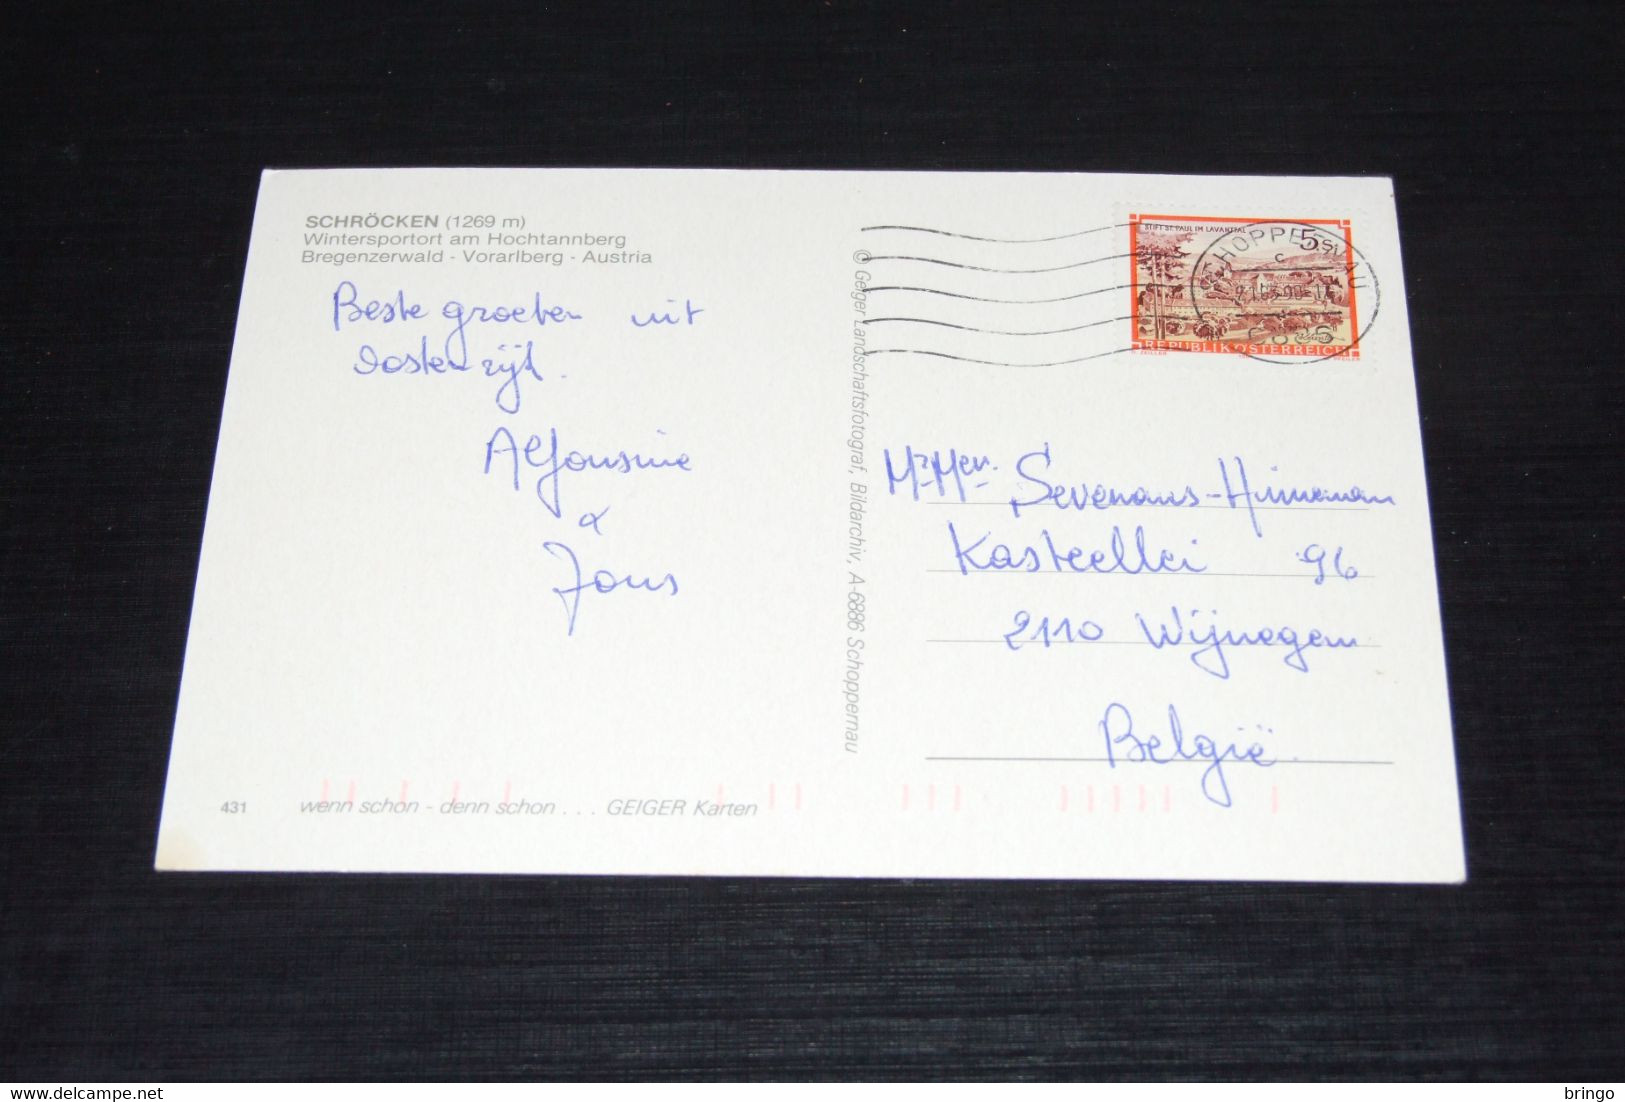 SCHRÖCKEN (1269 m)
Wintersportort am Hochtannberg
Bregenzerwald - Vorarlberg - Austria
Beste groeten uit
Oostenrijk.
Alfonsine
&
Fons
431
wenn schon - denn schon . . . GEIGER Karten
© Geiger Landschaftsfotograf, Bildarchiv, A-6886 Schoppernau
STIFT ST. PAUL IM LAVANTTAL
5 S
REPUBLIK ÖSTERREICH
O. ZEILLER
PFEILER
SCHOPPERNAU
c
6886
Mr Mev. Sevenans-Hinneman
Kasteellei 96
2110 Wijnegem
België
bringo